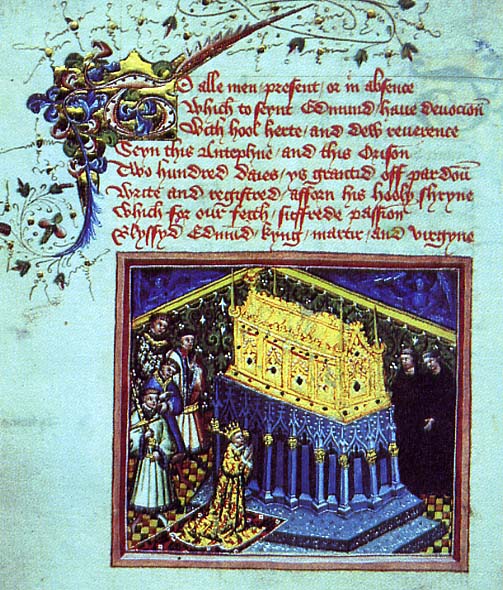 To alle men / present / or in absence
Which to seynt Edmund / haue deuocioun
With hool herte / and dew reuerence
Seyn this Antephne / and this Orison
Two hundred daies / ys grantid off pardoū
Write and registred / afforn his hooly shryne
Which for our feith / suffrede passioun
Blyssyd Edmund / kyng / martir / and virgyne